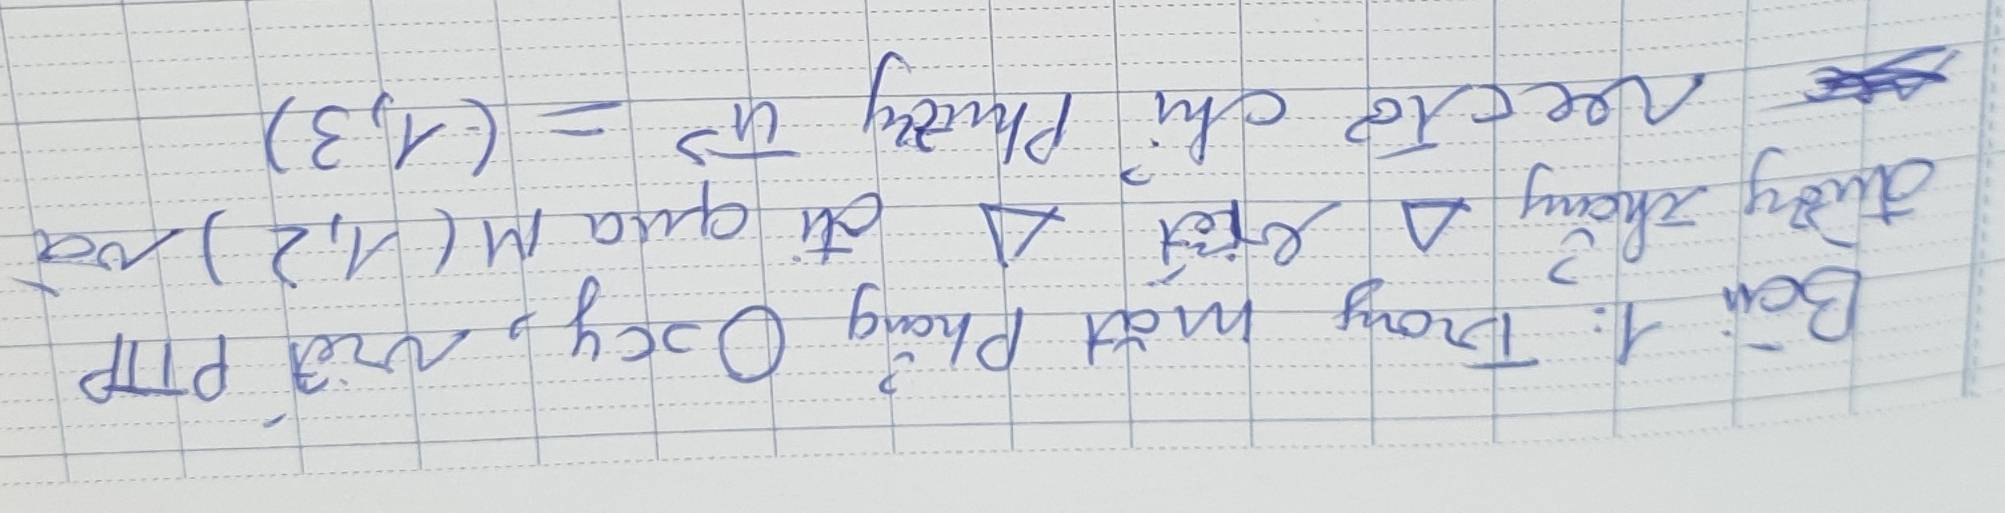 Bài 1: Trong mặt Phẳng Oxy, viết PTTP
đường thẳng Δ biết Δ đi qua M(1,2) và
vec tơ chỉ Phương u = (1,3)